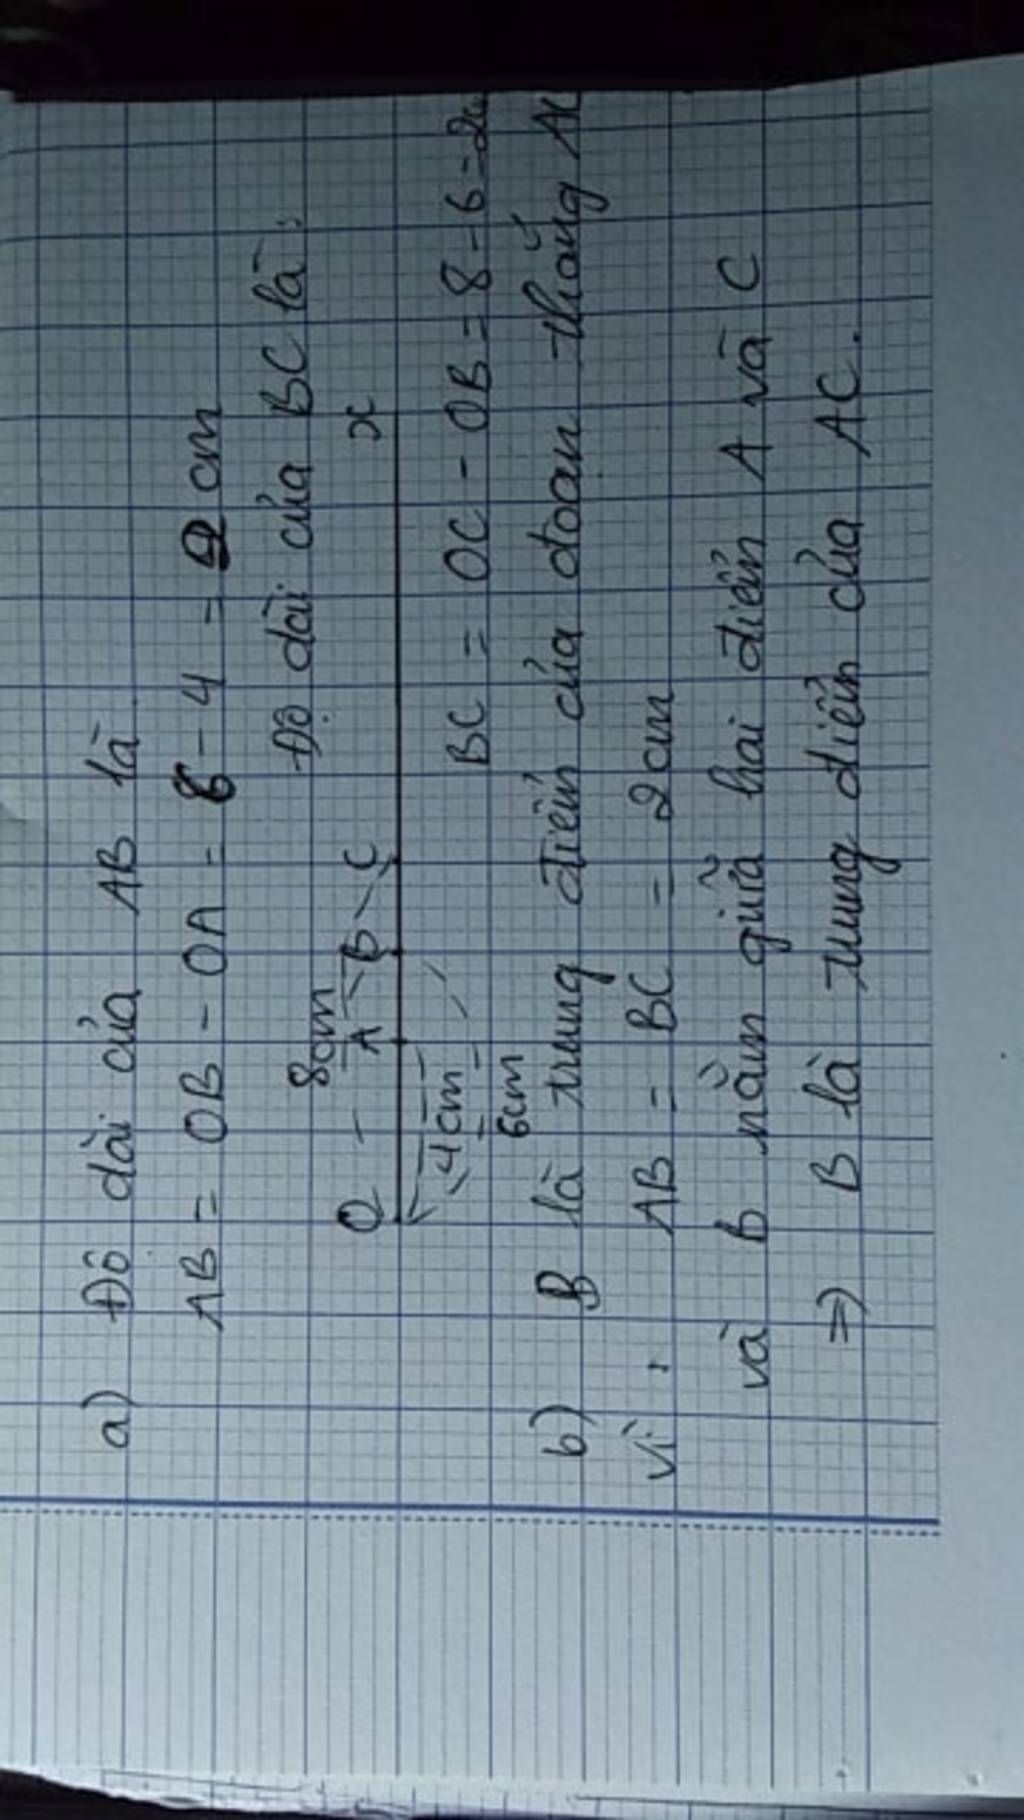 a) Độ dài của AB là
AB = OB - OA = 6 - 4 = 2 cm
Độ dài của BC là:
8cm
O A B C x
4cm
6cm
BC = OC - OB = 8 - 6 = 2c
b) B là trung điểm của đoạn thẳng AC
vì: AB = BC = 2cm
và B nằm giữa hai điểm A và C
=) B là trung điểm của AC.